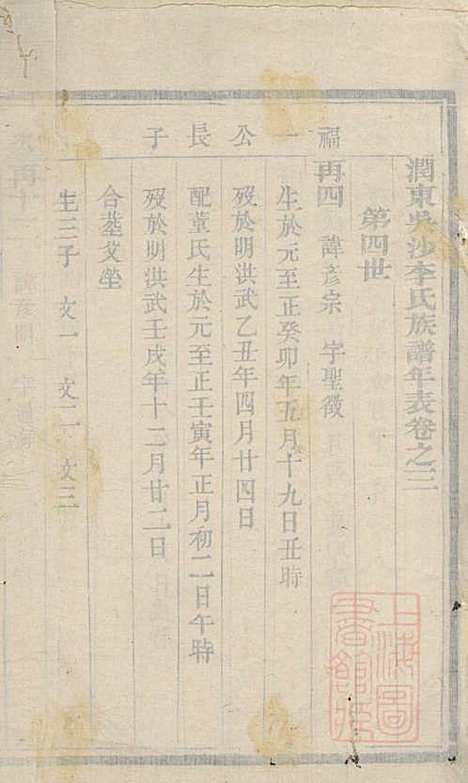 潤東吳沙李氏族譜年表卷之三
第四世
福一公長子
再四 諱彥宗 字聖徵
生於元至正癸卯年五月十九日丑時
歿於明洪武乙丑年四月廿四日
配董氏生於元至正壬寅年正月初二日午時
歿於明洪武壬戌年十二月廿二日
合葬艾塋
生三子 文一 文二 文三
上海圖書館藏